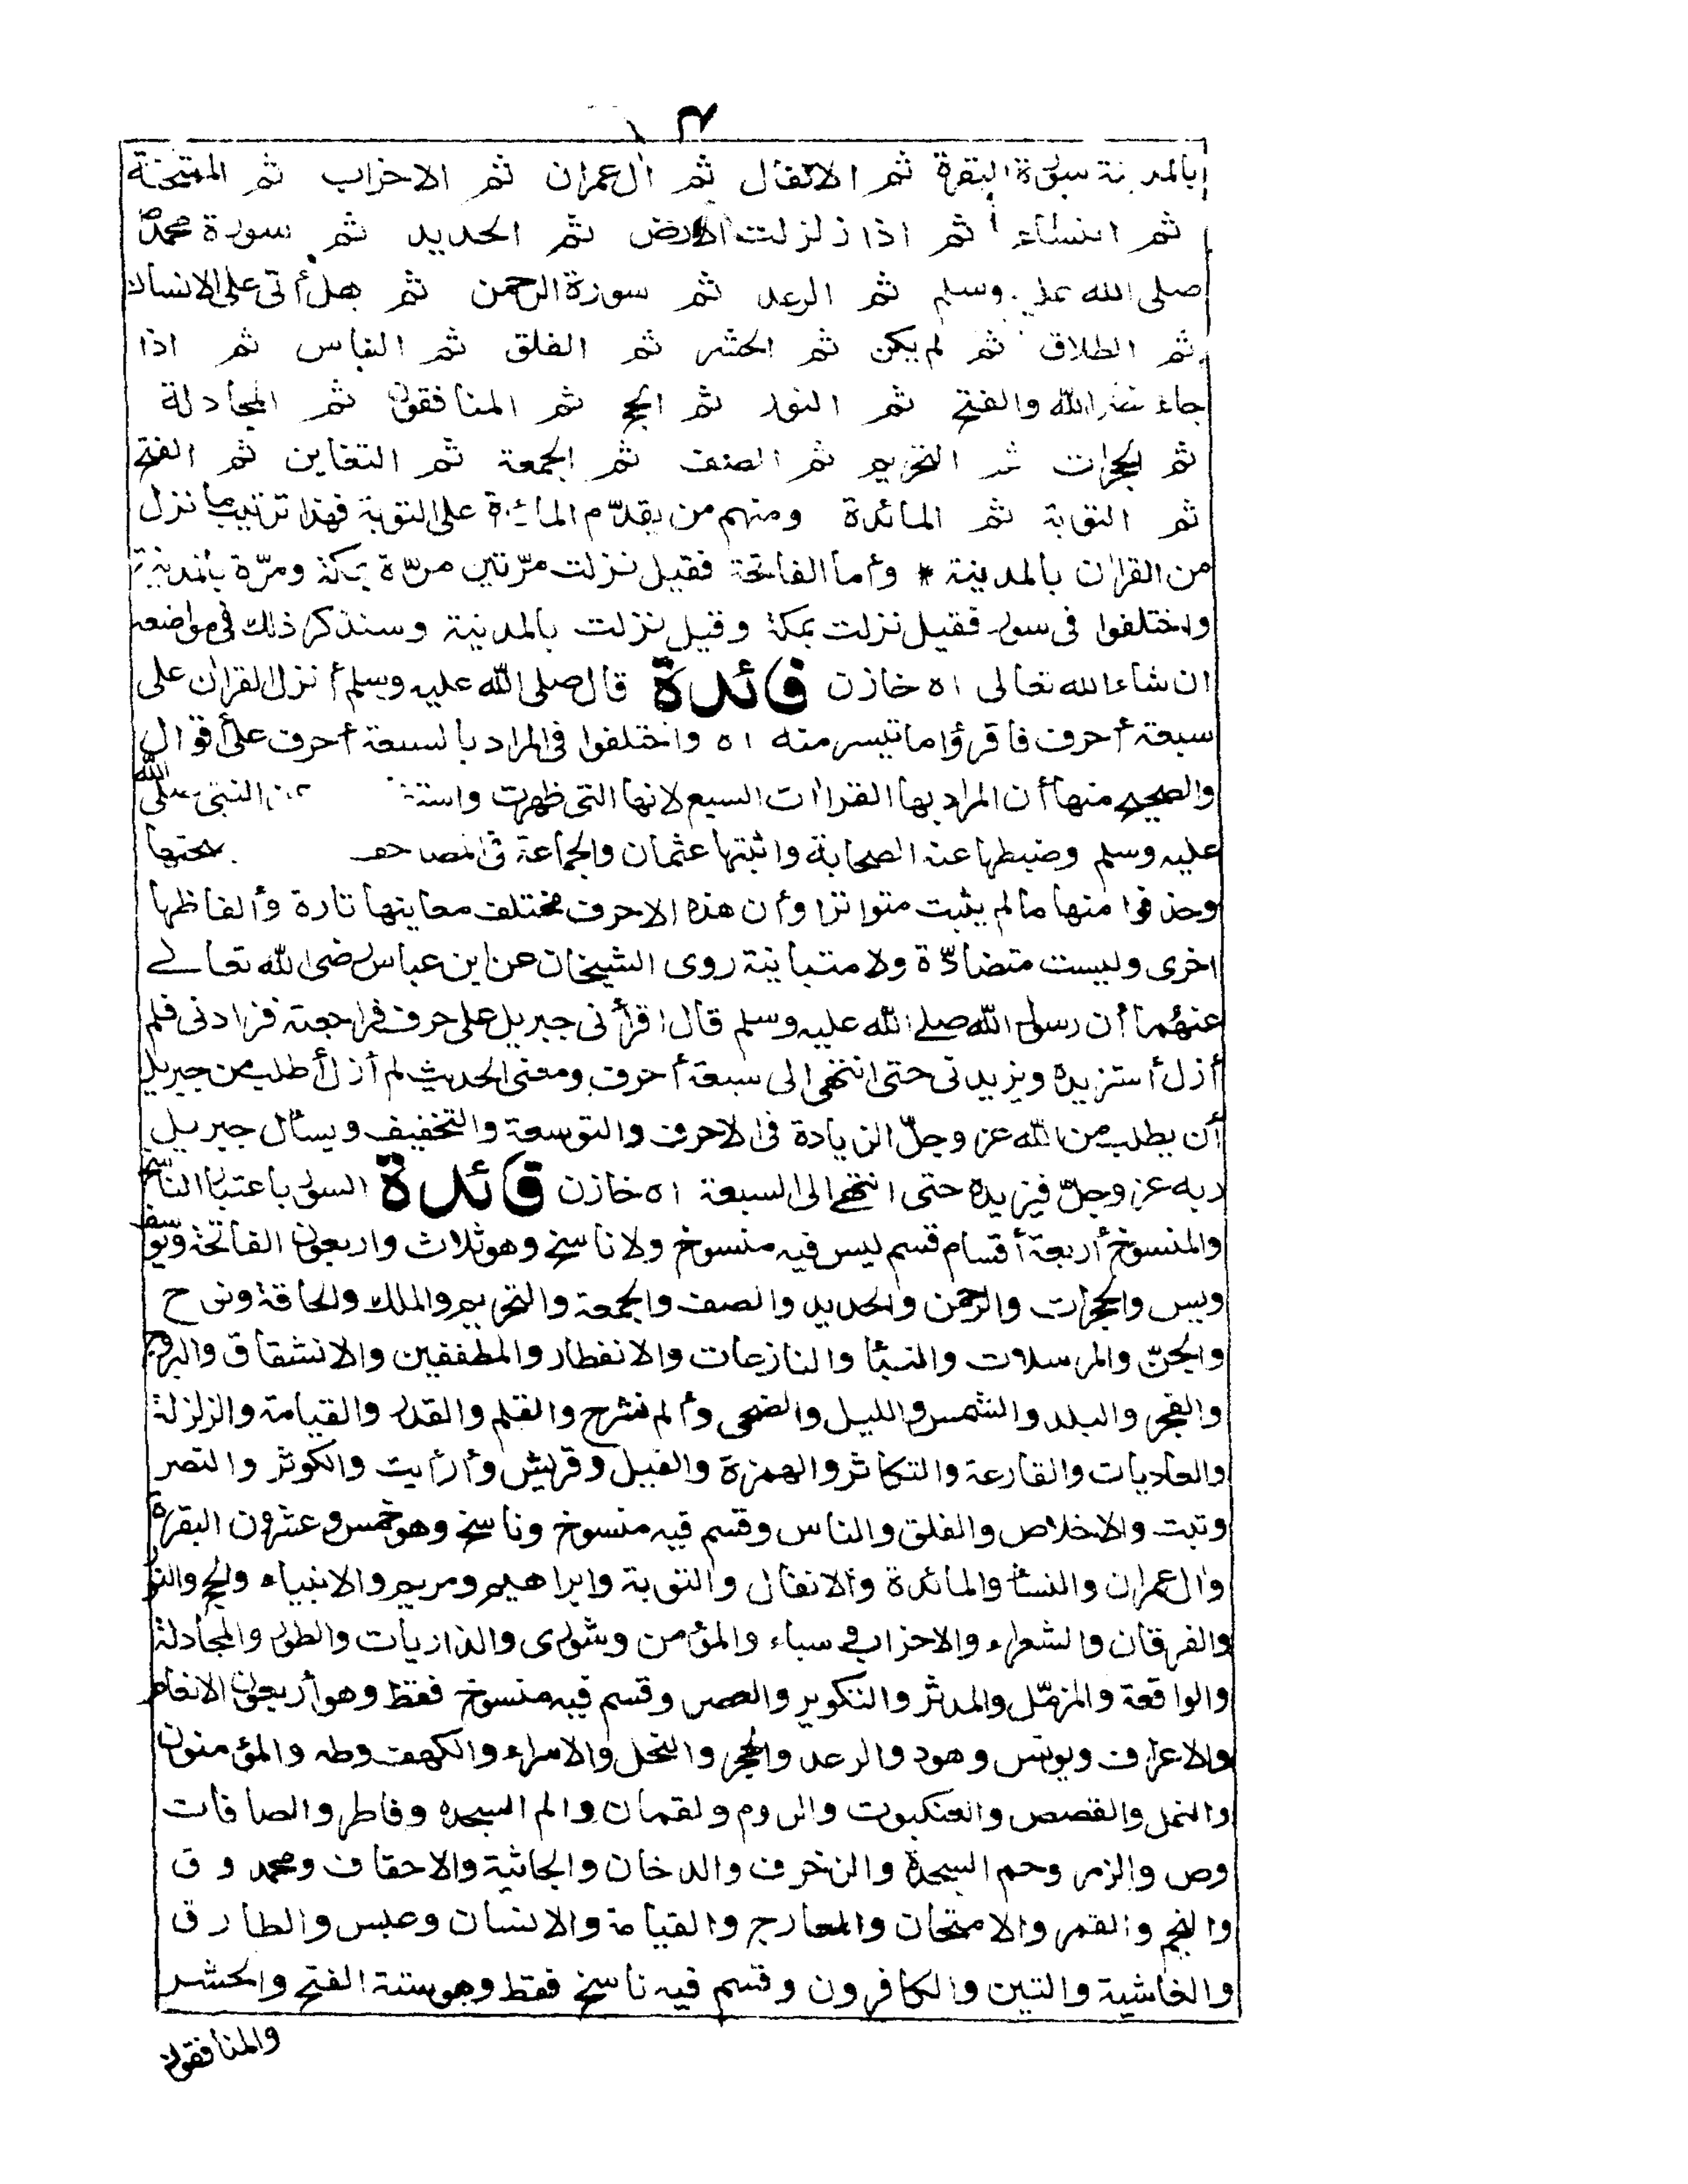 بالمدينة سورة البقرة ثم الانفال ثم اٰل عمران ثم الاحزاب ثم الممتحنة
ثم النساء ثم اذا زلزلت الارض ثم الحديد ثم سورة محمد
صلى الله عليه وسلم ثم الرعد ثم سورة الرحمن ثم هل أتى على الانسان
ثم الطلاق ثم لم يكن ثم الحشر ثم الفلق ثم الناس ثم اذا
جاء نصر الله والفتح ثم النور ثم الحج ثم المنافقون ثم المجادلة
ثم الحجرات ثم التحريم ثم الصف ثم الجمعة ثم التغابن ثم الفتح
ثم التوبة ثم المائدة ومنهم من يقدّم المائدة على التوبة فهذا ترتيب ما نزل
من القراٰن بالمدينة * وأما الفاتحة فقيل نزلت مرّتين مرّة بمكة ومرّة بالمدينة
واختلفوا فى سور فقيل نزلت بمكة وقيل نزلت بالمدينة وسنذكر ذلك فى مواضعه
ان شاء الله تعالى اه خازن فائدة قال صلى الله عليه وسلم أنزل القراٰن على
سبعة أحرف فاقرؤا ما تيسر منه اه واختلفوا فى المراد بالسبعة أحرف على أقوال
والصحيح منها أن المراد بها القراٰات السبع لانها التى ظهرت النبى صلى الله
عليه وسلم وضبطها عنه الصحابة واثبتها عثمان والجماعة فى المصاحف
وحذفوا منها ما لم يثبت متواترا وأن هذه الاحرف مختلف معاينها تارة وألفاظها
اخرى وليست متضادّة ولا متباينة روى الشيخان عن ابن عباس رضى الله تعالے
عنهما أن رسول الله صلے الله عليه وسلم قال اقرأنى جبريل على حرف فراجعته فزادنى فلم
أزل أستزيده ويزيدنى حتى انتهى الى سبعة أحرف ومعنى الحديث لم أزل أطلب من جبريل
أن يطلب من الله عز وجلّ الزيادة فى الاحرف والتوسعة والتخفيف ويسأل جبريل
ربه عز وجلّ فيزيده حتى انتهے الى السبعة اه خازن فائدة السور باعتبار الناسخ
والمنسوخ أربعة أقسام قسم ليس فيه منسوخ ولا ناسخ وهو ثلاث واربعون الفاتحة ويوسف
ويس والحجرات والرحمن والحديد والصف والجمعة والتحريم والملك والحاقة ونوح
والجنّ والمرسلات والنبأ والنازعات والانفطار والمطففين والانشقاق والبروج
والفجر والبلد والشمس والليل والضحى وألم نشرح والقلم والقدر والقيامة والزلزلة
والعاديات والقارعة والتكاثر والهمزة والفيل وقريش وأرأيت والكوثر والنصر
وتبت والاخلاص والفلق والناس وقسم فيه منسوخ وناسخ وهو خمس وعشرون البقرة
واٰل عمران والنساء والمائدة والانفال والتوبة وابراهيم ومريم والانبياء والحج والنور
والفرقان والشعراء والاحزاب وسباء والمؤمن وشورى والذاريات والطور والمجادلة
والواقعة والمزمّل والمدثر والتكوير والعصر وقسم فيه منسوخ فقط وهو أربعون الانعام
والاعراف ويونس وهود والرعد والحجر والنحل والاسراء والكهف وطه والمؤمنون
والنمل والقصص والعنكبوت والروم ولقمان والم السجده وفاطر والصافات
وص والزمر وحم السجدة والزخرف والدخان والجاثية والاحقاف ومحمد و ق
والنجم والقمر والامتحان والمعارج والقيامة والانسان وعبس والطارق
والغاشية والتين والكافرون وقسم فيه ناسخ فقط وهو ستة الفتح والحشر
والمنافقون